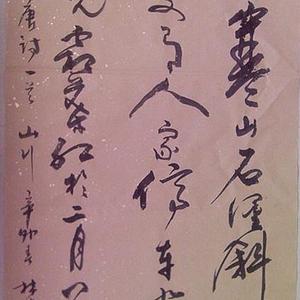 寒山石徑斜
有人家停车
霜葉紅於二月
唐詩一首 山行 辛卯春